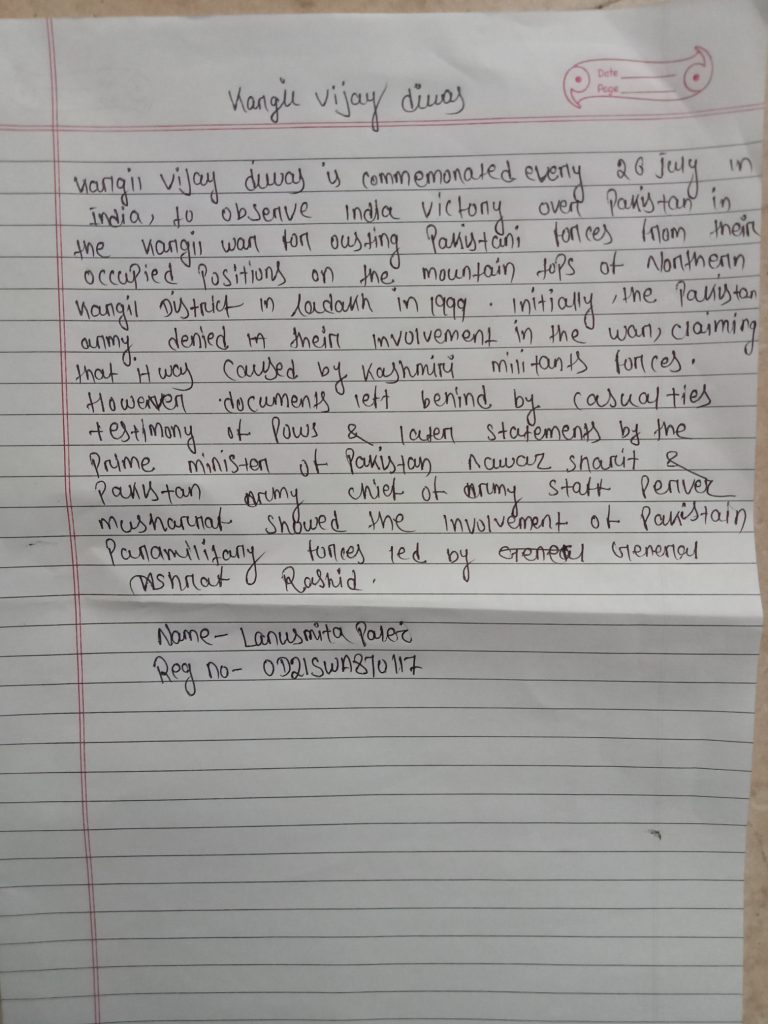 Kargil Vijay diwas
Date
Page
Kargil Vijay diwas is commemorated every 26 July in
India, to observe India victory over Pakistan in
the Kargil war for ousting Pakistani forces from their
occupied positions on the mountain tops of Northern
Kargil District in ladakh in 1999. initially, the Pakistan
army denied their involvement in the war, claiming
that it was caused by Kashmiri militants forces.
However documents left behind by casualties
testimony of Pows & later statements by the
Prime minister of Pakistan nawaz sharif &
Pakistan army chief of army staff Pervez
musharraf showed the involvement of Pakistain
Paramilitary forces led by General General
Ashraf Rashid.
Name- Lanusmita
Reg no- OD21SWA870117